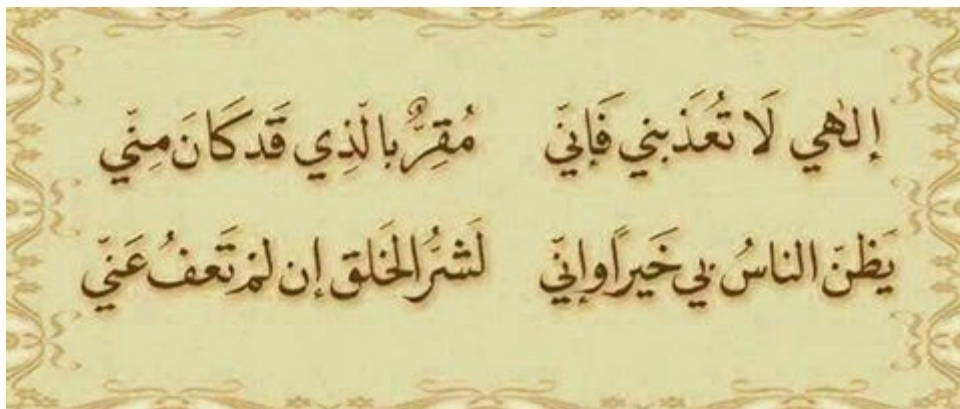 إلٰهي لَا تُعَذبني فَإنيّ مُقِرٌّ بالّذِي قَد كَانَ مِنيّ
يَظنّ الناسُ بي خَيراً وإنيّ لَشرُّ الخَلق إن لم تَعفُ عَنيّ